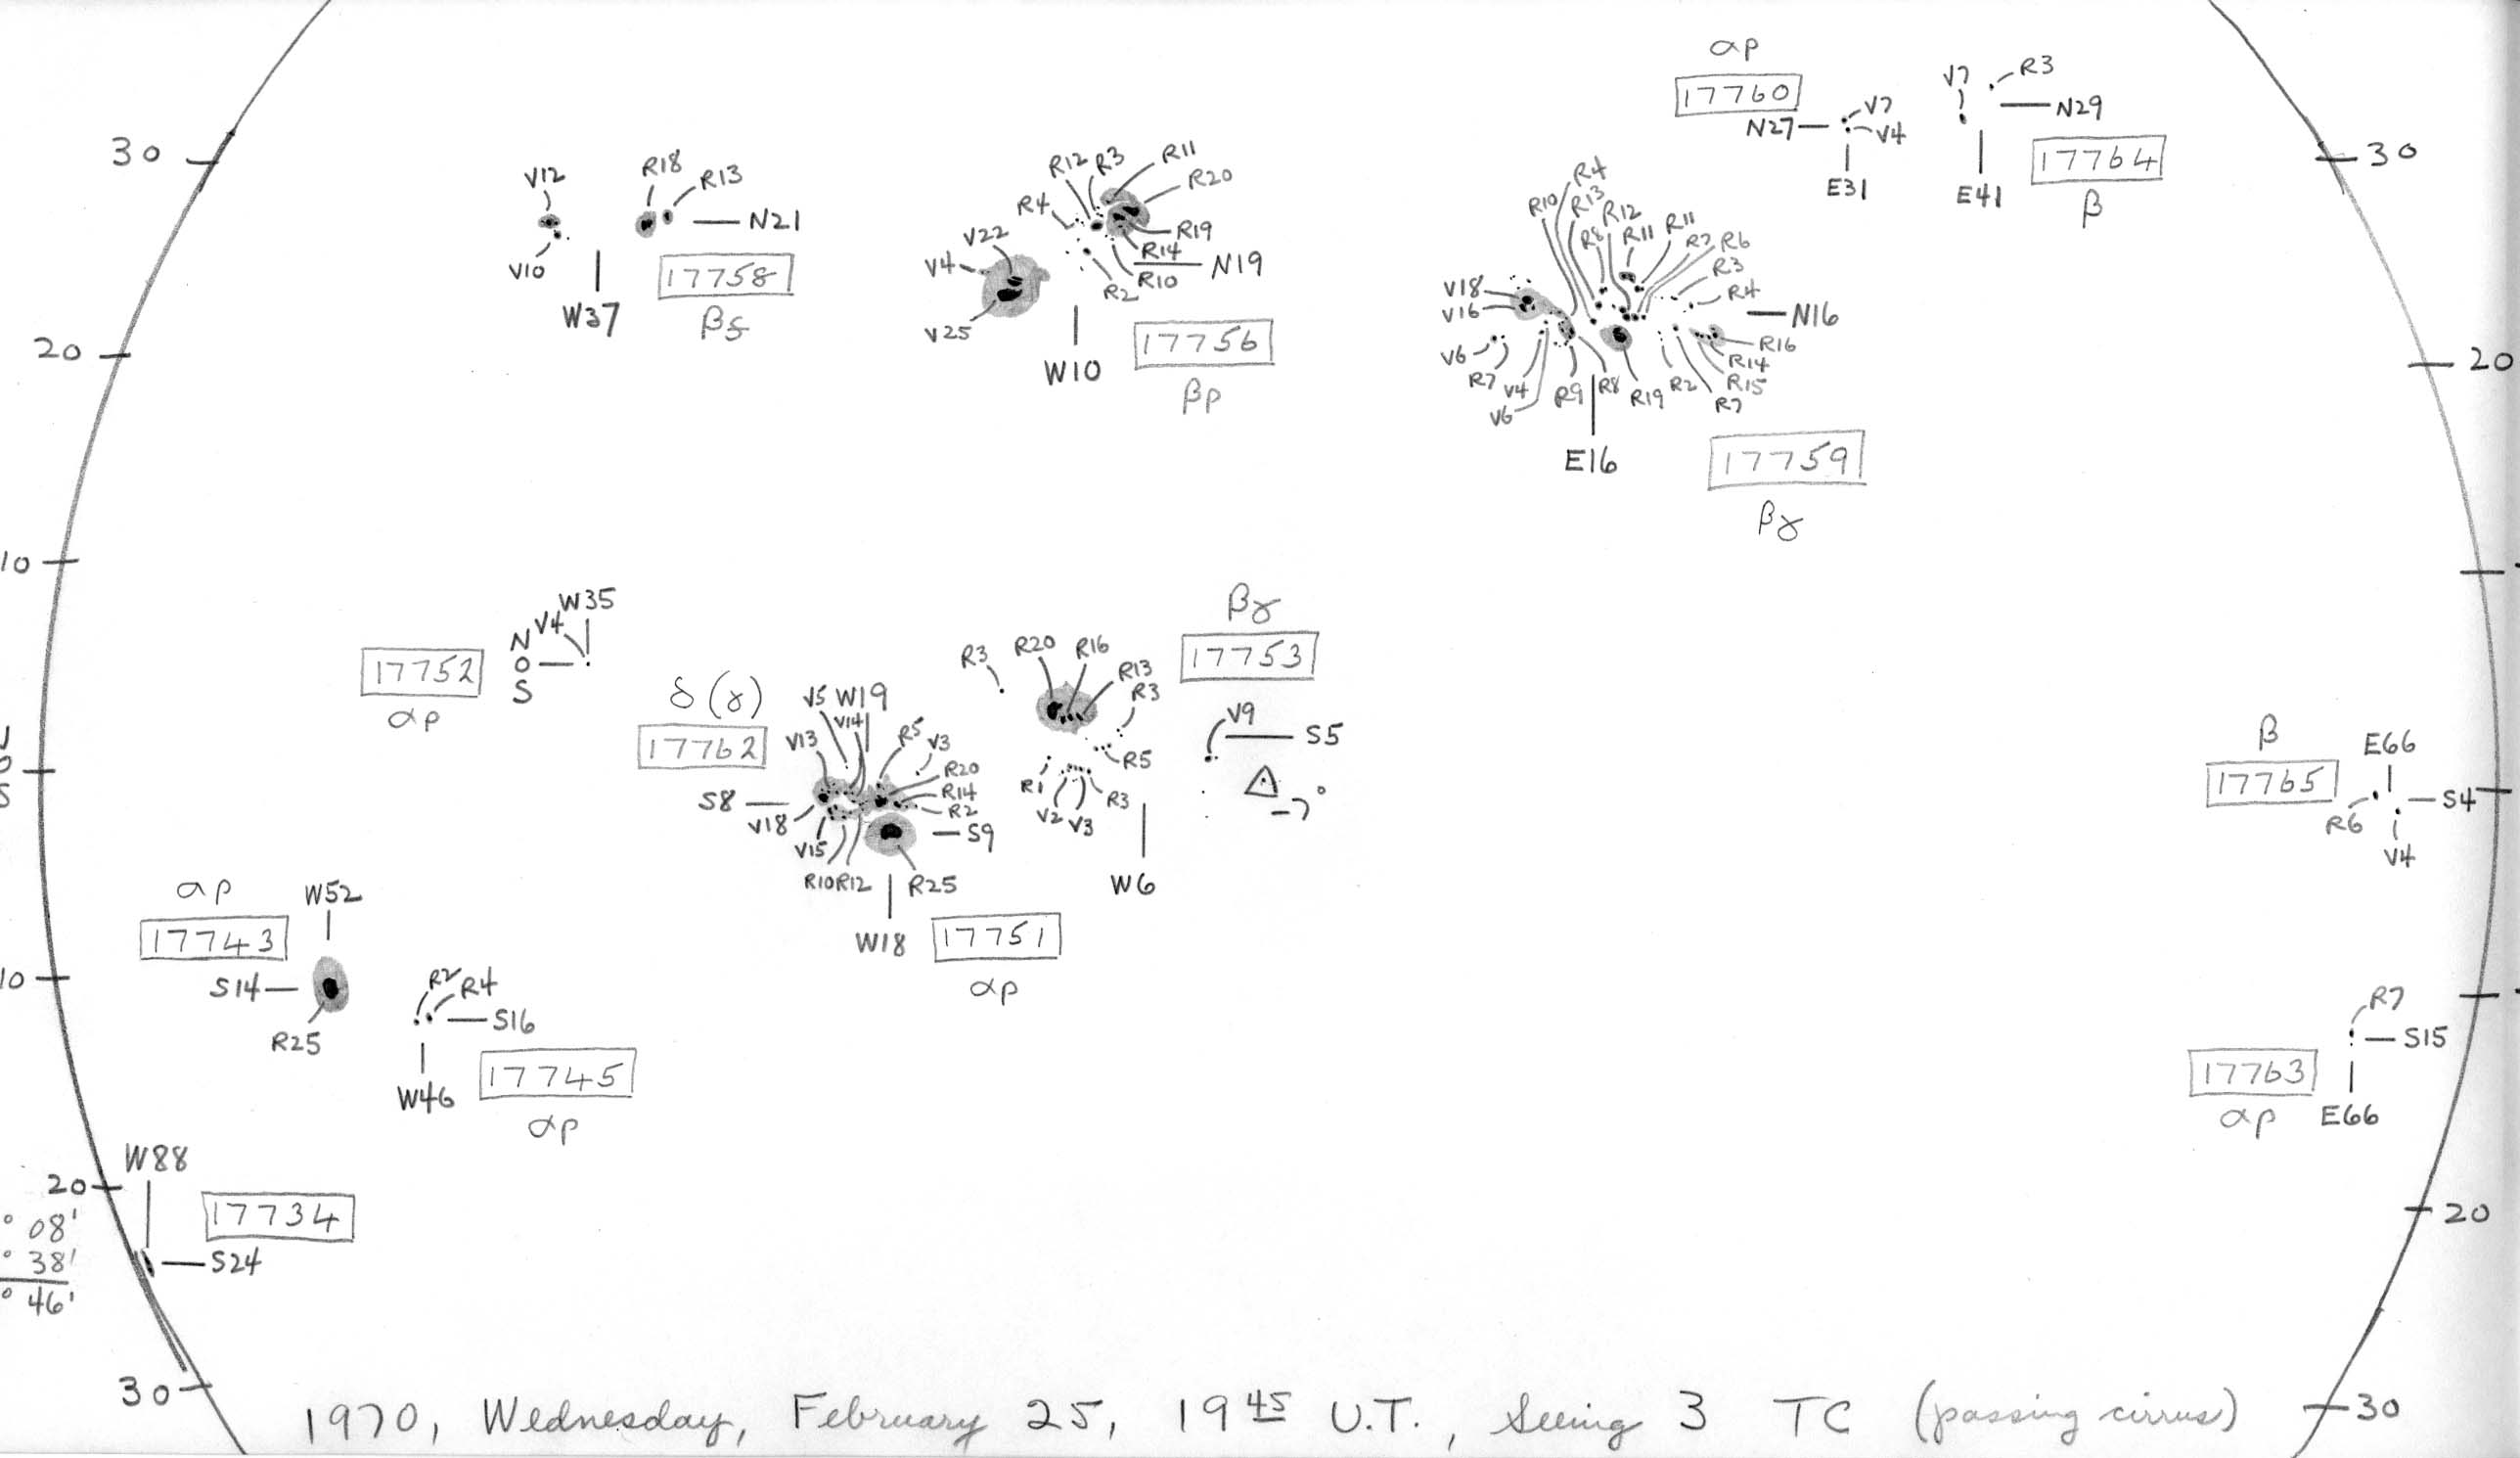 30
V12
V10
W37
R18
R13
N21
17758
βf
R12
R3
R11
R20
R4
V22
V4
V25
R19
R14
R10
R2
N19
W10
17756
βp
αp
17760
N27
V7
V4
E31
V7
R3
N29
E41
17764
β
30
R4
R10
R13
R12
R8
R11
R11
R7
R6
R3
R4
V18
V16
N16
V6
R7
V4
V6
R9
R8
R19
R2
R7
R15
R14
R16
E16
17759
βγ
20
20
10
W35
V4
N
O
S
17752
αp
δ (γ)
17762
V5
W19
V14
V13
R5
V3
R20
R14
R2
S8
V18
V15
R10
R12
R25
S9
W18
17751
αp
βγ
17753
R3
R20
R16
R13
R3
V9
S5
R5
R1
V2
V3
R3
W6
△
-7°
β
17765
E66
S4
R6
V4
αp
17743
W52
S14
R25
10
R2
R4
S16
W46
17745
αp
R7
S15
17763
αp
E66
W88
20
17734
S24
° 08'
° 38'
° 46'
20
30
1970, Wednesday, February 25, 19 45 U.T., Seeing 3 TC (passing cirrus)
30